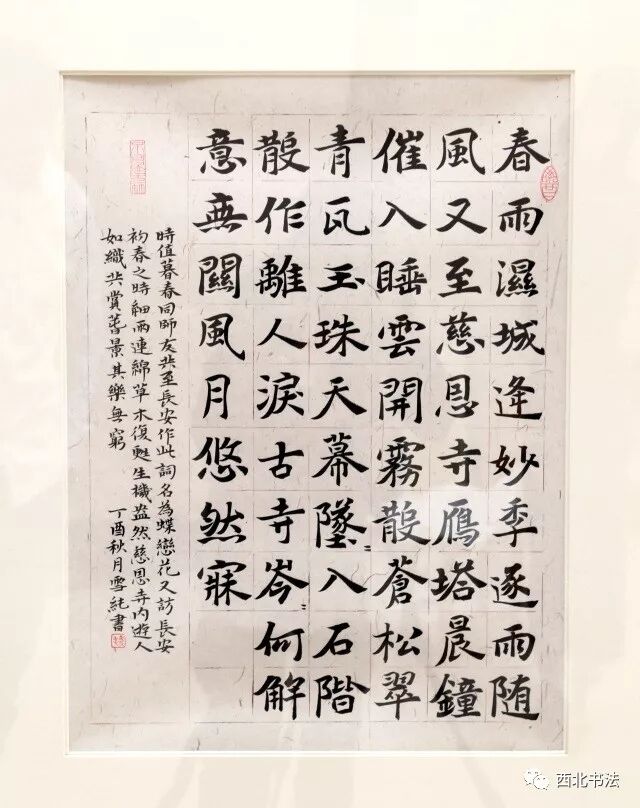 春雨濕城逢妙季逐雨随
風又至慈恩寺鴈塔晨鐘
催入睡雲開霧散蒼松翠
青瓦玉珠天幕墜〻入石階
散作離人淚古寺岑〻何解
意無關風月悠然寐
時值暮春同師友共至長安作此詞名為蝶戀花又訪長安
初春之時細雨連綿草木復甦生機盎然慈恩寺内遊人
如織共賞蓍景其樂無窮
丁酉秋月雪純書
西北书法